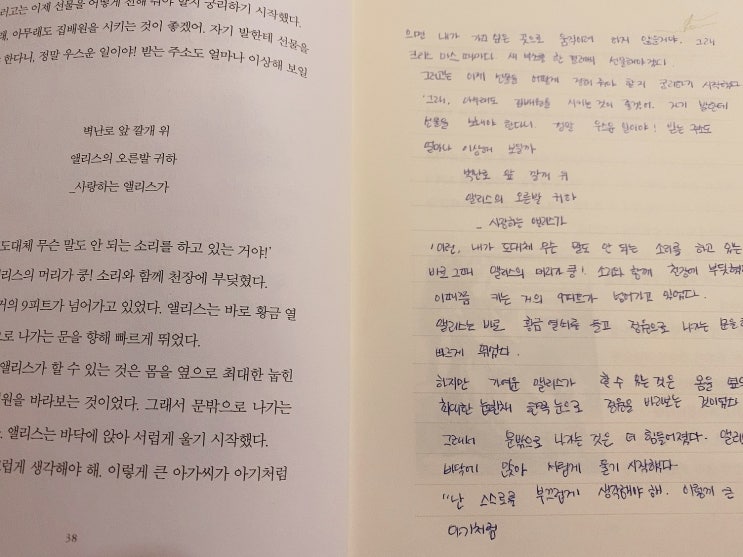 러고는 이제 선물을 어떻게 전해 줘야 할지 궁리하기 시작했다.
래, 아무래도 집배원을 시키는 것이 좋겠어. 자기 발한테 선물을
한다니, 정말 우스운 일이야! 받는 주소도 얼마나 이상해 보일
벽난로 앞 깔개 위
앨리스의 오른발 귀하
_사랑하는 앨리스가
도대체 무슨 말도 안 되는 소리를 하고 있는 거야!'
리스의 머리가 쿵! 소리와 함께 천장에 부딪혔다.
거의 9피트가 넘어가고 있었다. 앨리스는 바로 황금 열
로 나가는 문을 향해 빠르게 뛰었다.
앨리스가 할 수 있는 것은 몸을 옆으로 최대한 눕힌
원을 바라보는 것이었다. 그래서 문밖으로 나가는
앨리스는 바닥에 앉아 서럽게 울기 시작했다.
럽게 생각해야 해. 이렇게 큰 아가씨가 아기처럼
38
으면 내가 가고 싶은 곳으로 움직이려 하지 않을거야. 그래
크리스마스 때마다 새 부츠를 한 켤레씩 선물해야겠다.
그러고는 이제 선물을 어떻게 전해 줘야 할지 궁리하기 시작했다
'그래, 아무래도 집배원을 시키는 것이 좋겠어. 자기 발한테
선물을 보내야 한다니, 정말 우스운 일이야! 받는 주소도
얼마나 이상해 보일까
벽난로 앞 깔개 위
앨리스의 오른발 귀하
_ 사랑하는 앨리스가
'이런, 내가 도대체 무슨 말도 안 되는 소리를 하고 있는
바로 그때 앨리스의 머리가 쿵! 소리와 함께 천장에 부딪혔
이때쯤 키는 거의 9피트가 넘어가고 있었다.
앨리스는 바로 황금 열쇠를 들고 정원으로 나가는 문을
빠르게 뛰었다.
하지만 가여운 앨리스가 할 수 있는 것은 몸을 옆으
최대한 눕힌채 한쪽 눈으로 정원을 바라보는 것이었다
그래서 문밖으로 나가는 것은 더 힘들어졌다. 앨리
바닥에 앉아 서럽게 울기 시작했다
"난 스스로를 부끄럽게 생각해야 해. 이렇게 큰
아기처럼